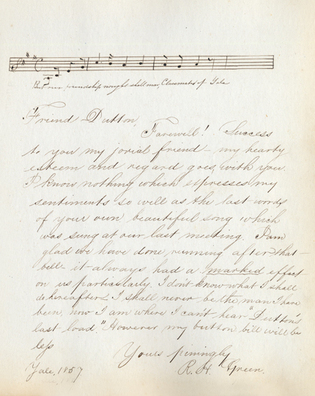 friendship weight shall own, Classmates of Yale.
Friend Dutton
Farewell! Success
to you my jovial friend – my hearty
esteem and regard goes with you.
I know nothing which expresses my
sentiments so well as the last words
of your own beautiful song which
was sung at our last meeting. I am
glad we have done running after that
bell it always had a marked effect
on us particularly I don't know what I shall
do hereafter I shall never be the man I have
been, now I am where I can't hear Dutton's
last load" However my button bill will be
less
Yours piningly
Yale, 1857
R. H. Green.